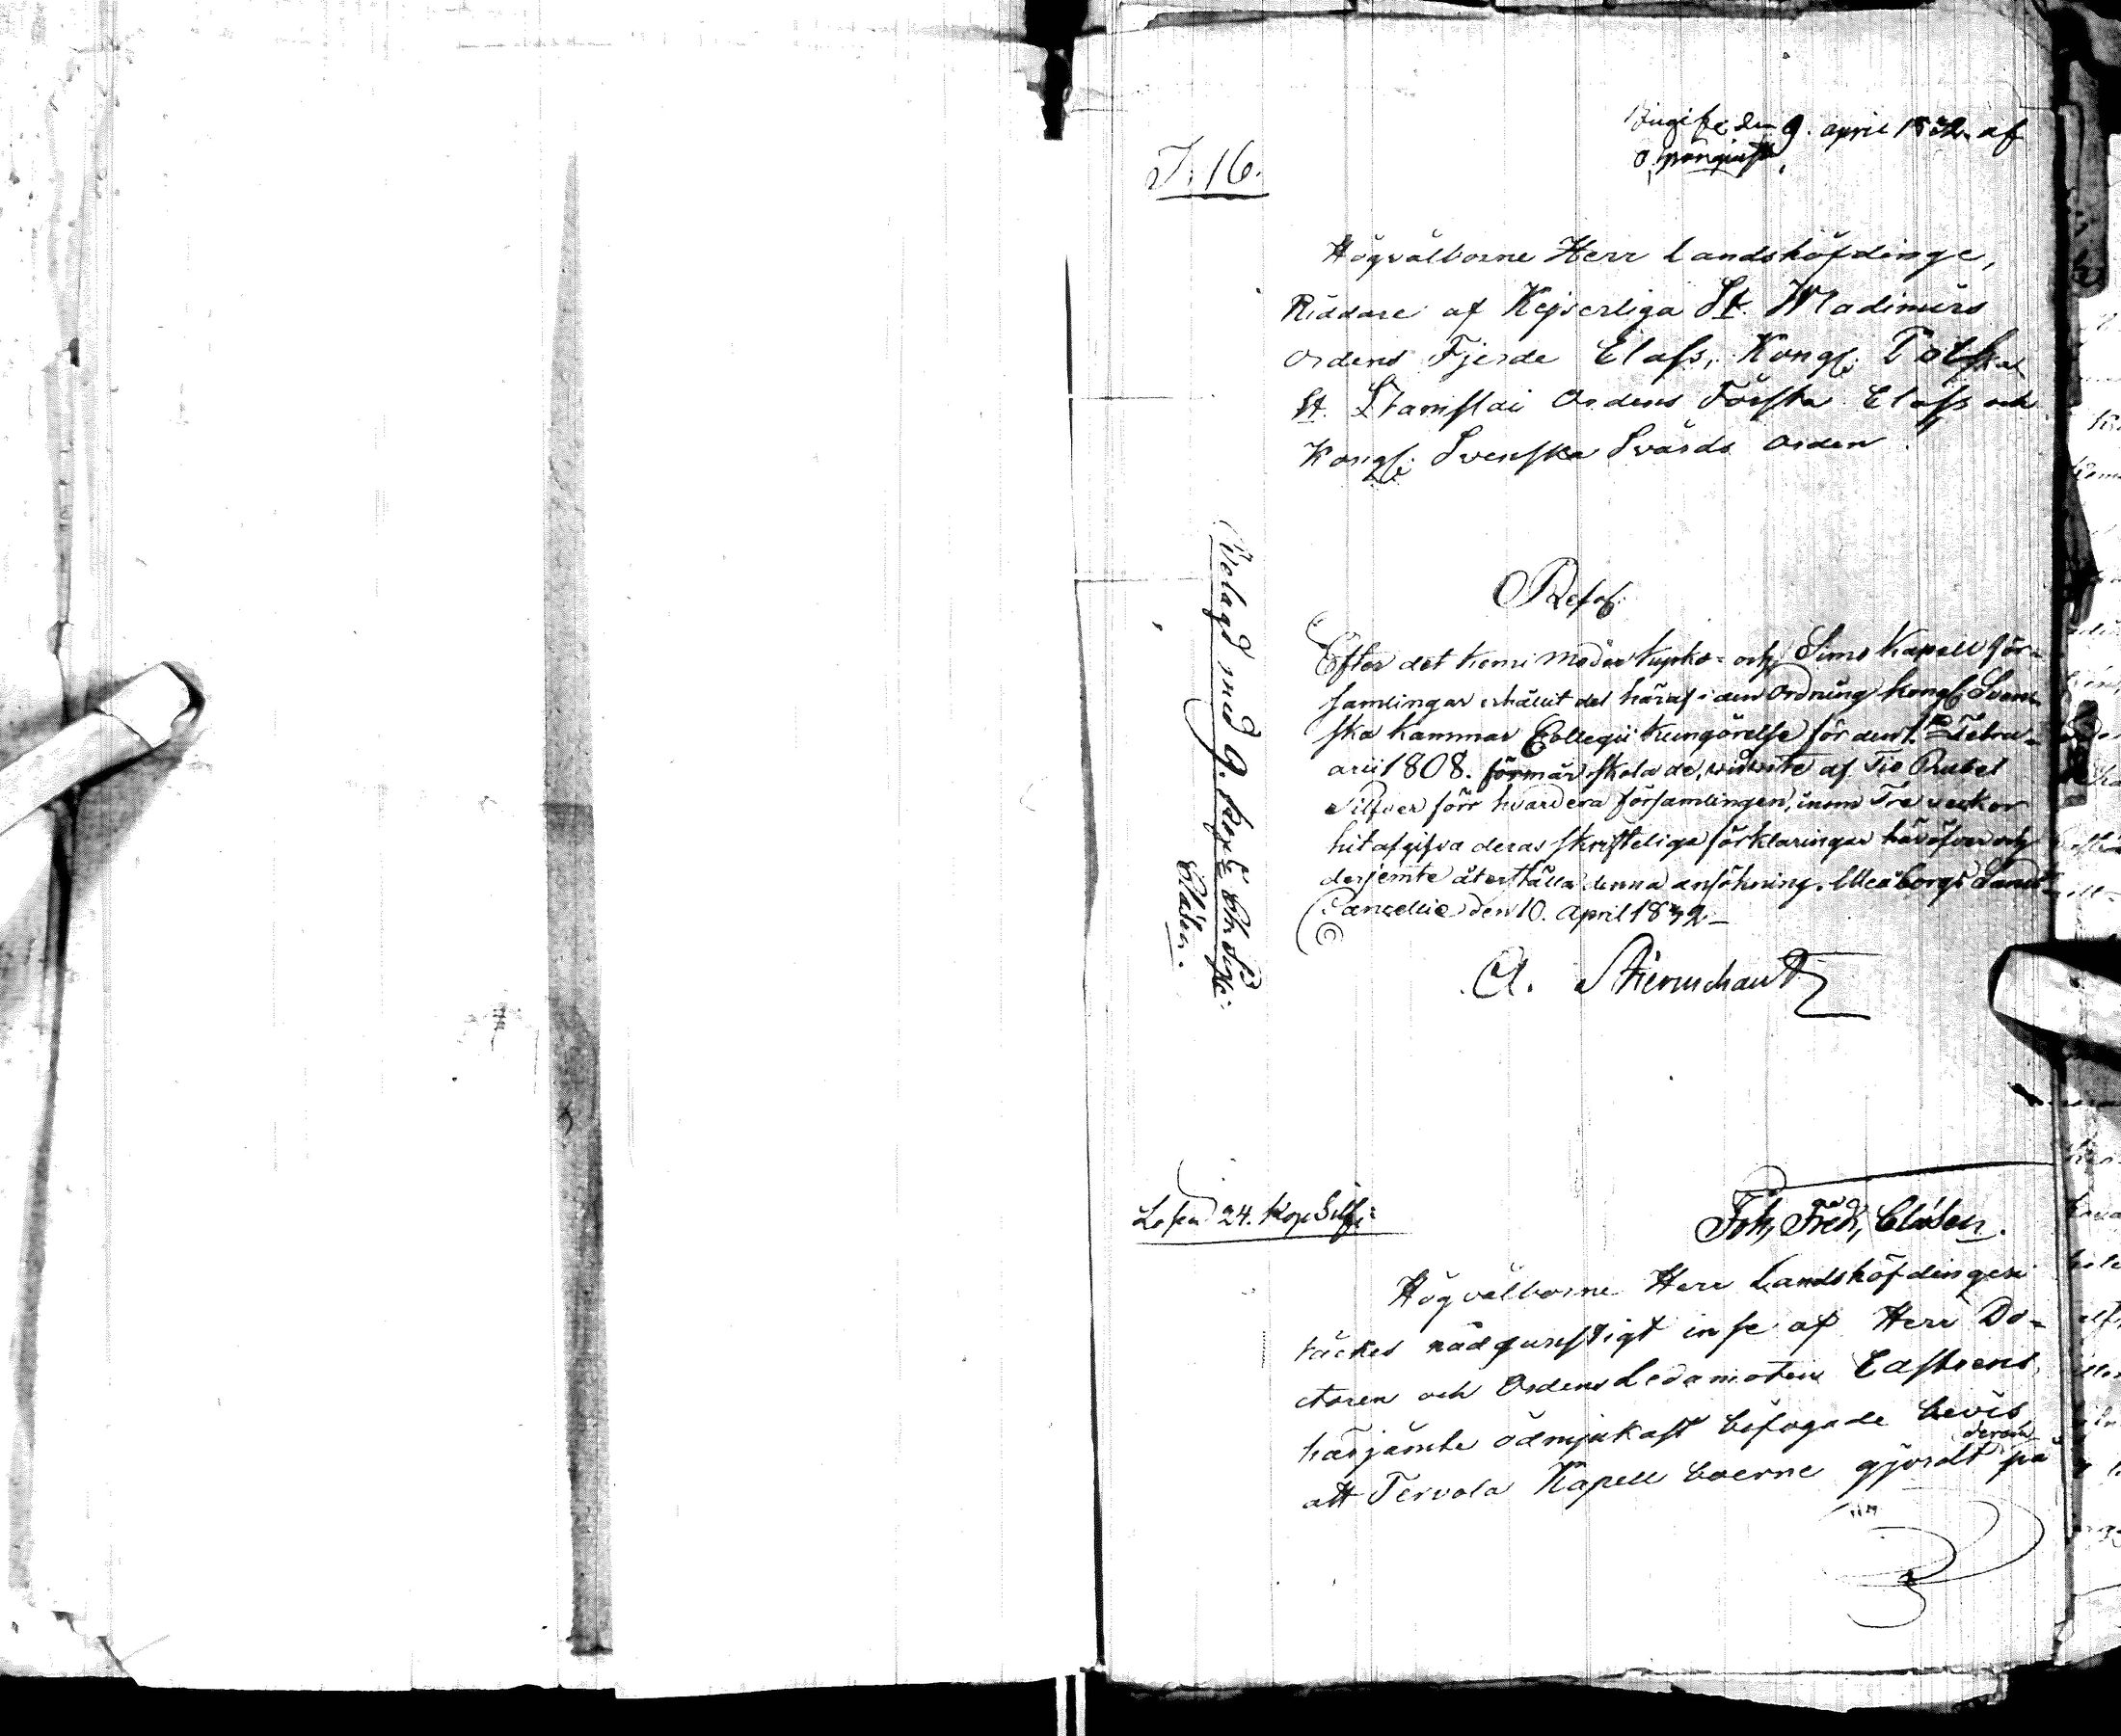 Ingifv. den 9. april 1832 af
J. 16.
Högvälborne Herr Landshöfdinge,
Riddare af Kejserliga St. Wladimirs
Ordens Fjerde Class, Kongl. Polska
St. Stanislai Ordens Första Class och
Kongl. Svenska Svärds Orden!
Resol:
Efter det Kemi Moder Kyrko- och Simo Kapell för-
samlingar erhållit del häraf i den Ordning Kongl. Svens-
ska Kammar Collegii Kungörelse för den 1. Febru-
arii 1808. förmår skola de, widvite af Tio Rubel
Silfver förr hvardera församlingen, inom Tre veckor
hit afgifva deras skrifteliga förklaringar häröfver och
derjemte återställa denna ansökning. Uleåborgs Lands
Cancellie den 10. April 1832-
A. Stiernschantz
Belagd med 9. Kop:
Clásen.
Lösen 24. Kop Silfr:
Joh, Fredr, Clásen.
Högvälborne Herr Landshöfdingen
täckes nådgunstigt inse af Herr Do-
ctoren och Ordens Ledamoten Castrens
härjämte ödmjukast bifogade bevis
att Tervola Kapell boerne gjordt på
derom